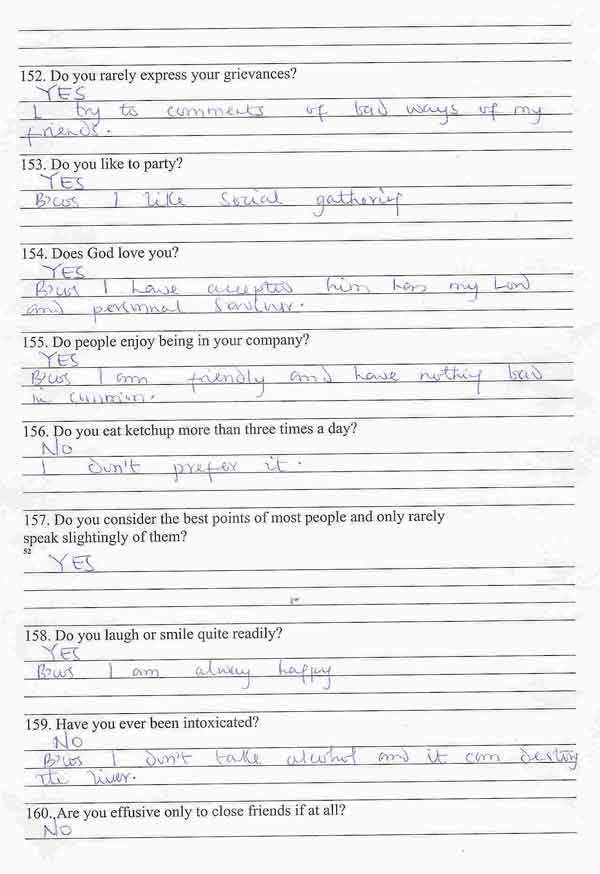 152. Do you rarely express your grievances?
YES
I try to comments of bad ways of my
friends.
153. Do you like to party?
YES
B'cos I like social gathering
154. Does God love you?
YES
B'cos I have accepted him has my Lord
and personal Saviour.
155. Do people enjoy being in your company?
YES
B'cos I am friendly and have nothing bad
in common.
156. Do you eat ketchup more than three times a day?
NO
I don't prefer it.
157. Do you consider the best points of most people and only rarely
speak slightingly of them?
52
YES
158. Do you laugh or smile quite readily?
YES
B'cos I am alway happy
159. Have you ever been intoxicated?
NO
B'cos I don't take alcohol and it can destroy
the liver.
160. Are you effusive only to close friends if at all?
NO